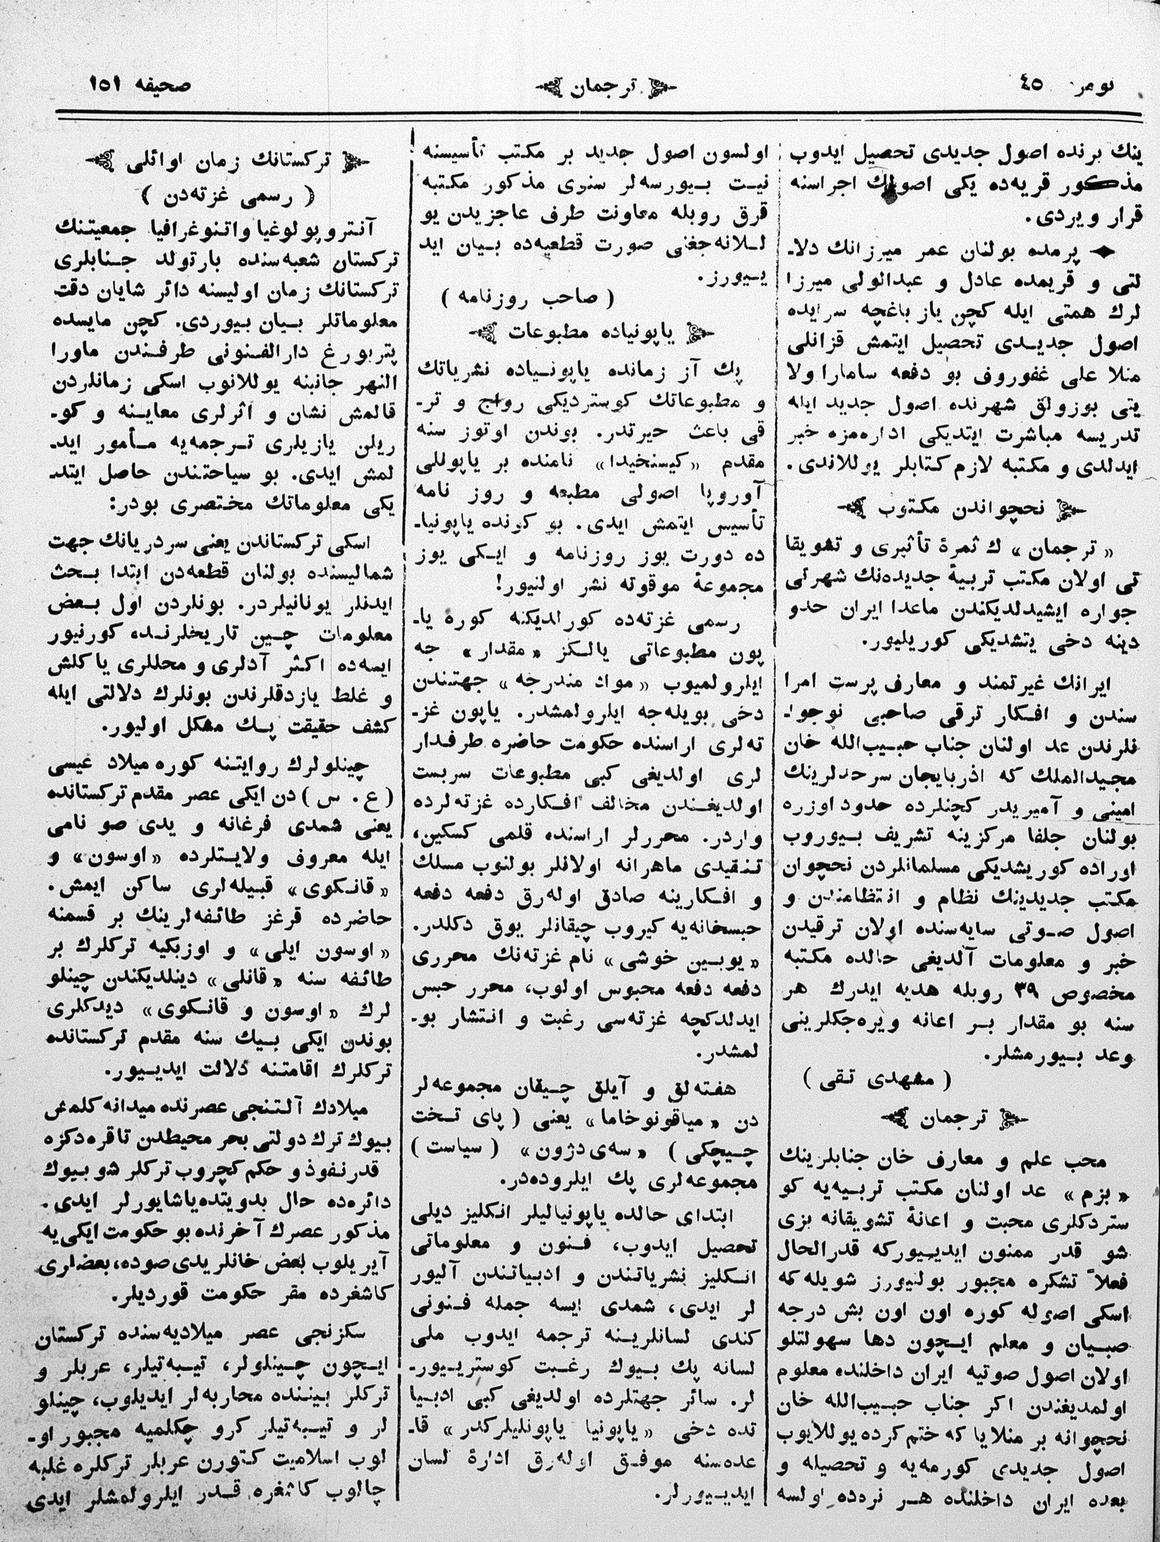 نومر ٤٥
ترجمان
صحيفه ١٥١
ينك برنده اصول جديدى تحصيل ايدوب
مذكور قريه‌ده يكى اصولك اجراسنه
قرار ويردى.
پرمده بولنان عمر ميرزانك دلا-
لتى و قريمده عادل و عبدالولى ميرزا
لرك همتى ايله كچن ياز باغچه سرايده
اصول جديدى تحصيل ايتمش قزانلى
منلا على غفوروف بو دفعه سامارا ولا
يتى بوزولق شهرنده اصول جديد ايله
تدريسه مباشرت ايتديكى اداره‌مزه خبر
ايدلدى و مكتبه لازم كتابلر يوللاندى.
نحچواندن مكتوب
« ترجمان » ك ثمرۀ تأثيرى و تشويقا
تى اولان مكتب تربيۀ جديده‌نك شهرتى
جواره ايشيدلديكندن ماعدا ايران حدو
دينه دخى يتشديكى كوريليور.
ايرانك غيرتمند و معارف پرست امرا
سندن و افكار ترقى صاحبى نوجوا-
نلرندن عد اولنان جناب حبيب‌الله خان
مجيدالملك كه اذربايجان سرحدلرينك
امينى و آميريدر كچنلرده حدود اوزره
بولنان جلفا مركزينه تشريف بيوروب
اوراده كوريشديكى مسلمانلردن نحچوان
مكتب جديدينك نظام و انتظامندن و
اصول صوتى سايه‌سنده اولان ترقيدن
خبر و معلومات آلديغى حالده مكتبه
مخصوص ٣٩ روبله هديه ايدرك هر
سنه بو مقدار بر اعانه ويره‌جكلرينى
وعد بيورمشلر.
( مشهدى تقى )
ترجمان
محب علم و معارف خان جنابلرينك
« بزم » عد اولنان مكتب تربيه‌يه كو
ستردكلرى محبت و اعانۀ تشويقانه بزى
شو قدر ممنون ايدييوركه قدرالحال
فعلاً تشكره مجبور بولنيورز شويله‌كه
اسكى اصوله كوره اون اون بش درجه
صبيان و معلم ايچون دها سهولتلو
اولان اصول صوتيه ايران داخلنده معلوم
اولمديغندن اكر جناب حبيب‌الله خان
نحچوانه بر منلا يا كه ختم كرده يوللايوب
اصول جديدى كورمه‌يه و تحصيله و
بعده ايران داخلنده هر نرده اولسه
اولسون اصول جديد بر مكتب تأسيسنه
نيت بيورسه‌لر سنوى مذكور مكتبه
قرق روبله معاونت طرف عاجزيدن يو
للانه‌جغنى صورت قطعيه‌ده بيان ايد
ييورز.
( صاحب روزنامه )
ياپونياده مطبوعات
پك آز زمانده ياپونياده نشرياتك
و مطبوعاتك كوسترديكى رواج و تر-
قى باعث حيرتدر. بوندن اوتوز سنه
مقدم «كيسنخيدا» نامنده بر ياپونلى
آوروپا اصولى مطبعه و روز نامه
تأسيس ايتمش ايدى. بو كونده ياپونيا-
ده دورت يوز روزنامه و ايكى يوز
مجموعۀ موقوته نشر اولنيور!
رسمى غزته‌ده كورلديكنه كوره يا-
پون مطبوعاتى يالكز «مقدار» جه
ايلرولميوب «مواد مندرجه» جهتندن
دخى بويله‌جه ايلرولمشدر. ياپون غز-
ته‌لرى اراسنده حكومت حاضره طرفدار
لرى اولديغى كبى مطبوعات سربست
اولديغندن مخالف افكارده غزته‌لرده
واردر. محررلر اراسنده قلمى كسكين،
تنقيدى ماهرانه اولانلر بولنوب مسلك
و افكارينه صادق اوله‌رق دفعه دفعه
حبسخانه‌يه كيروب چيقانلر يوق دكلدر.
«يوبين خوشى» نام غزته‌نك محررى
دفعه دفعه محبوس اولوب، محرر حبس
ايدلدكچه غزته‌سى رغبت و انتشار بو-
لمشدر.
هفته‌لق و آيلق چيقان مجموعه‌لر
دن «مياقونوخاما» يعنى ( پاى تخت
چيچكى ) «سه‌ى دژون» ( سياست )
مجموعه‌لرى پك ايلروده‌در.
ابتداى حالده ياپونياليلر انكليز ديلى
تحصيل ايدوب، فنون و معلوماتى
انكليز نشرياتندن و ادبياتندن آليور
لر ايدى، شمدى ايسه جمله فنونى
كندى لسانلرينه ترجمه ايدوب ملى
لسانه پك بيوك رغبت كوسترييور-
لر. سائر جهتلرده اولديغى كبى ادبيا
تده دخى «ياپونيا ياپونليلركدر» قا-
عده‌سنه موفق اوله‌رق ادارۀ لسان
ايدييورلر.
تركستانك زمان اوائلى
( رسمى غزته‌دن )
آنتروپولوغيا واتنوغرافيا جمعيتنك
تركستان شعبه‌سنده بارتولد جنابلرى
تركستانك زمان اوليسنه دائر شايان دقت
معلوماتلر بيان بيوردى. كچن مايسده
پتربورغ دارالفنونى طرفندن ماورا
النهر جانبنه يوللانوب اسكى زمانلردن
قالمش نشان و اثرلرى معاينه و كو-
ريلن يازيلرى ترجمه‌يه مأمور ايد-
لمش ايدى. بو سياحتندن حاصل ايتد-
يكى معلوماتك مختصرى بودر:
اسكى تركستاندن يعنى سردريانك جهت
شماليسنده بولنان قطعه‌دن ابتدا بحث
ايدنلر يونانيلردر. بونلردن اول بعض
معلومات چين تاريخلرنده، كورنيور
ايسه‌ده اكثر آدلرى و محللرى ياكلش
و غلط يازدقلرندن بونلرك دلالتى ايله
كشف حقيقت پك مشكل اوليور.
چينلولرك روايتنه كوره ميلاد عيسى
(ع. س) دن ايكى عصر مقدم تركستانده
يعنى شمدى فرغانه و يدى صو نامى
ايله معروف ولايتلرده «اوسون» و
«قانكوى» قبيله‌لرى ساكن ايمش.
حاضرده قرغز طائفه‌لرينك بر قسمنه
«اوسون ايلى» و اوزبكيه تركلرك بر
طائفه سنه «قانلى» دينلديكندن چينلو
لرك «اوسون و قانكوى» ديدكلرى
بوندن ايكى بيك سنه مقدم تركستانده
تركلرك اقامتنه دلالت ايدييور.
ميلادك آلتنجى عصرنده ميدانه كلمش
بيوك ترك دولتى بحر محيطدن تا قره‌دكزه
قدرنفوذ و حكم كچروب تركلر شو بيوك
دائره‌ده حال بدويتده ياشايورلر ايدى.
مذكور عصرك آخرنده بو حكومت ايكى يه
آيريلوب بعض خانلر يدى صوده، بعضلرى
كاشغرده مقر حكومت قورديلر.
سكزنجى عصر ميلاديه‌سنده تركستان
ايچون چينلولر، تيبه‌تيلر، عربلر و
تركلر بيننده محاربه‌لر ايديلوب، چينلو
لر و تيبه‌تيلر كرو چكلميه مجبور او-
لوب اسلاميت كتورن عربلر تركلره غلبه
چالوب كاشغره قدر ايلرولمشلر ايدى